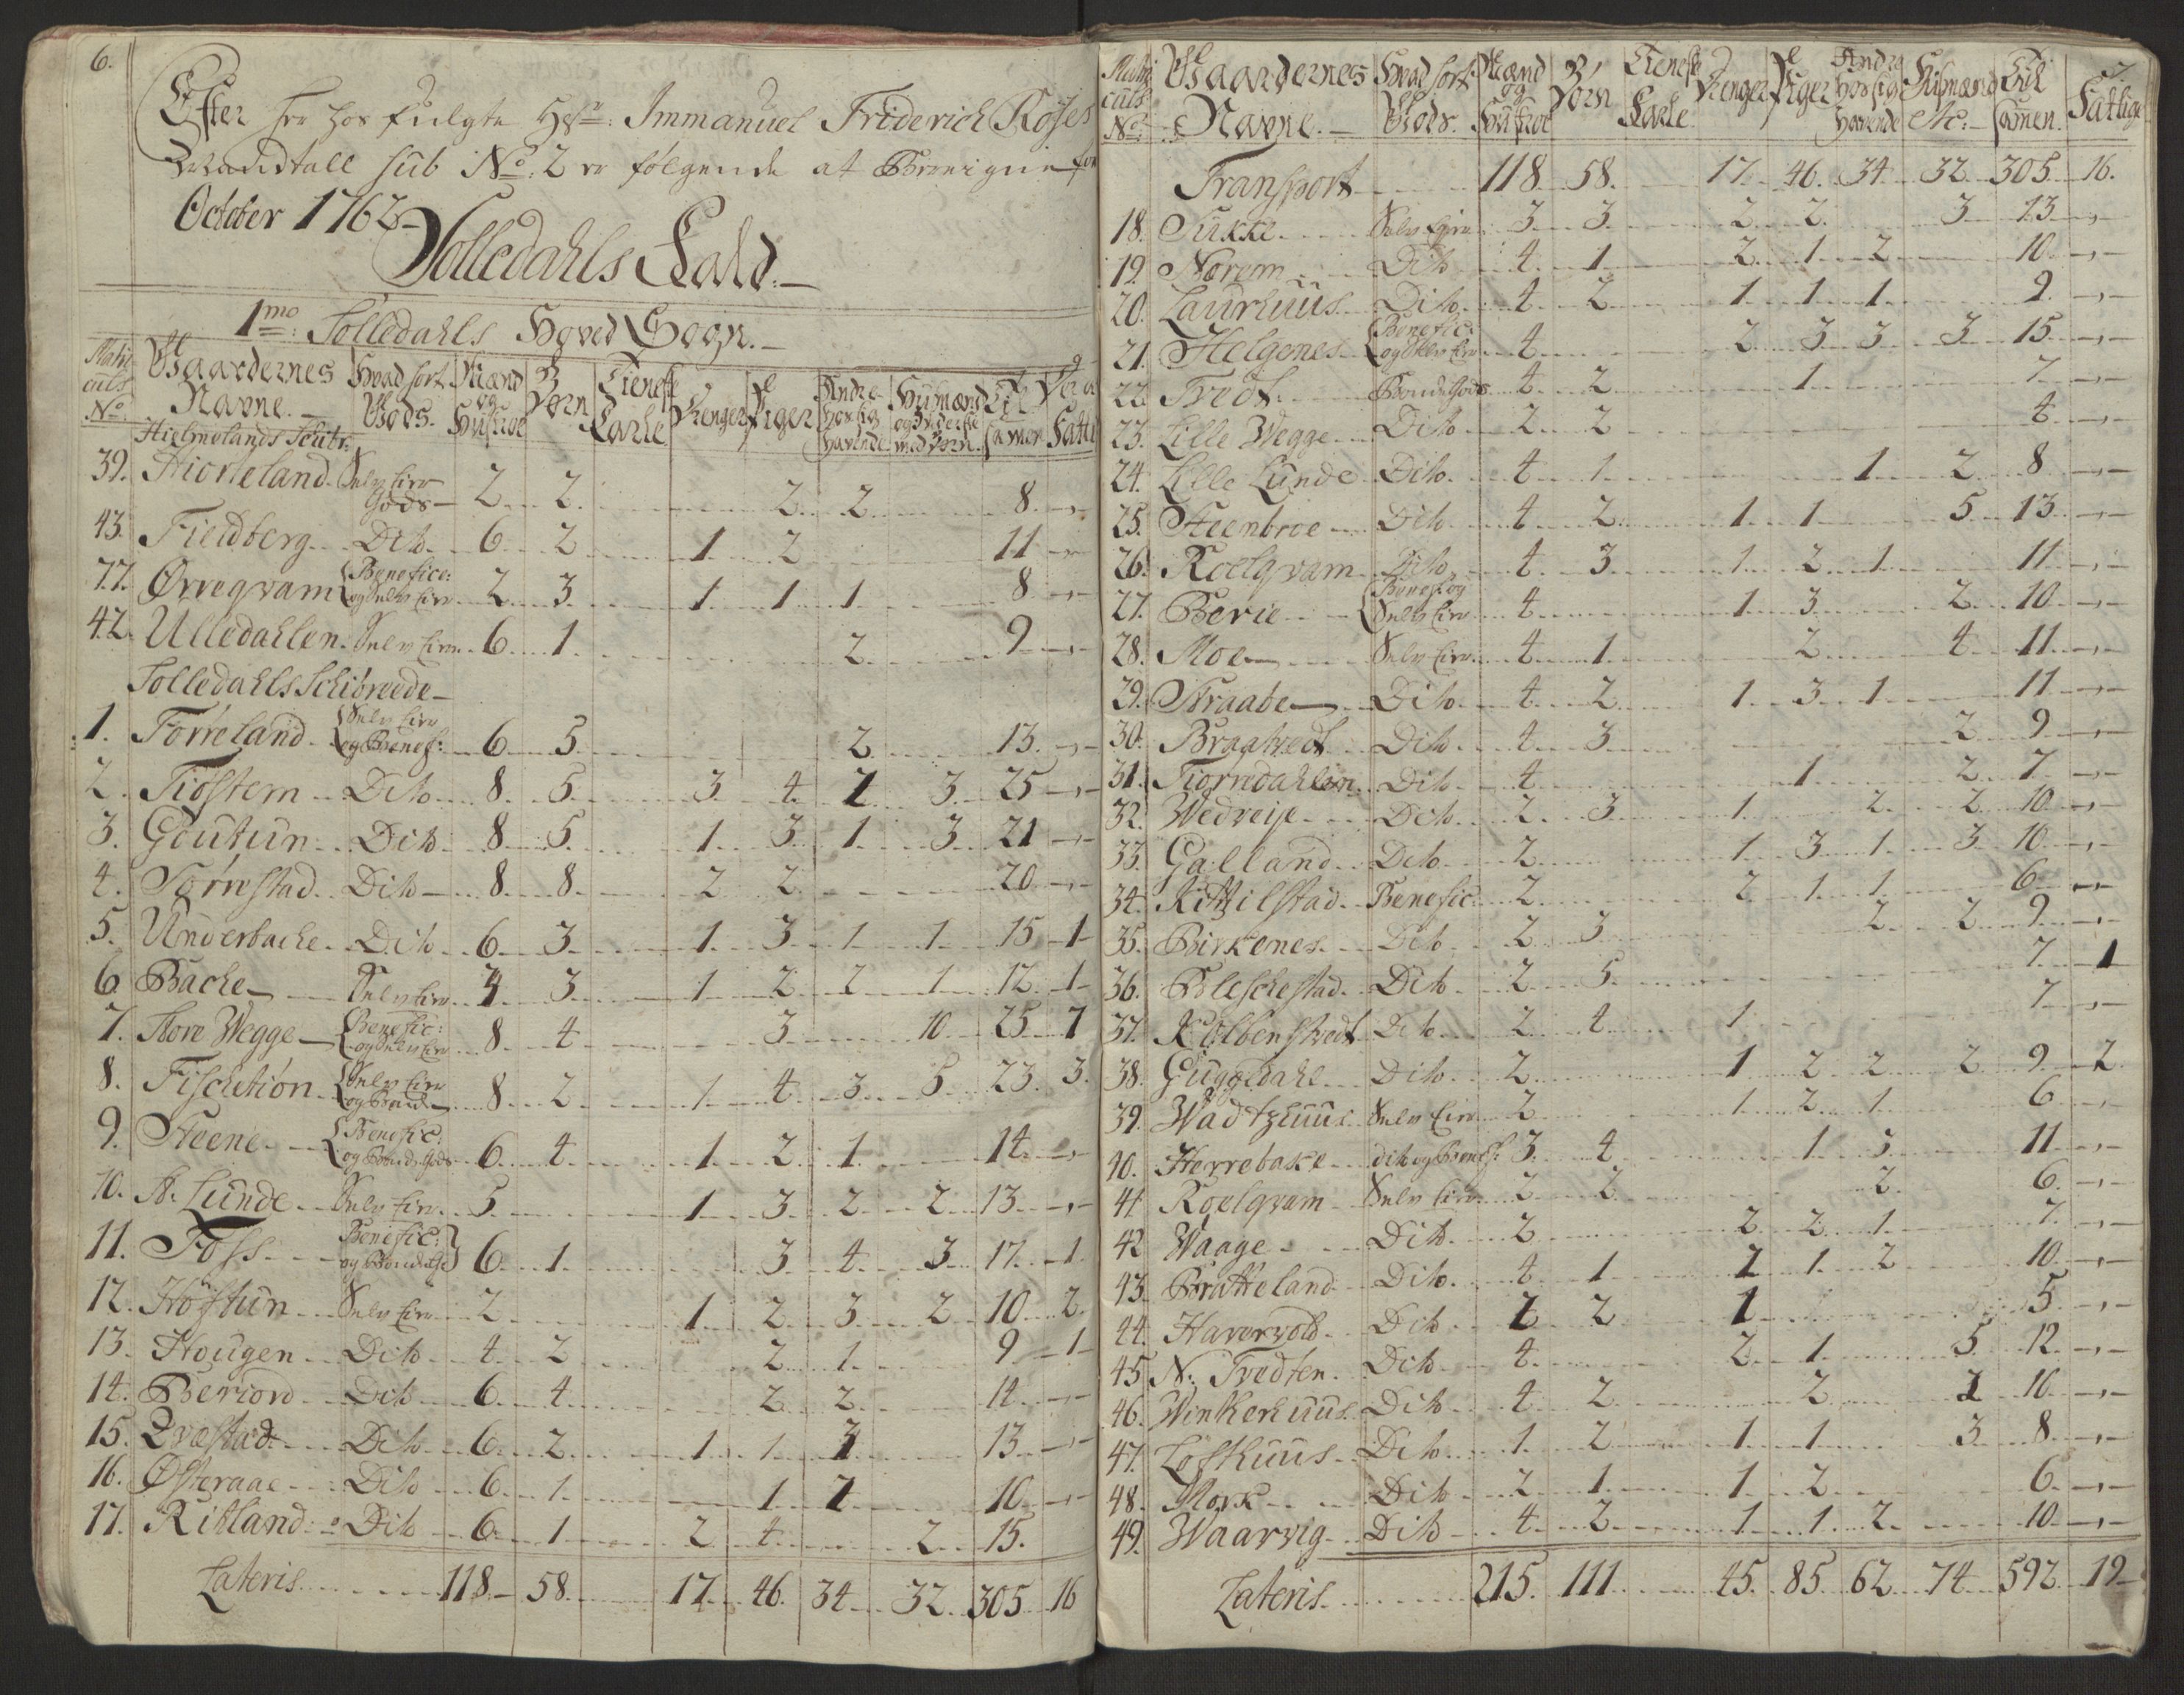 6.
Efter her hos fulgte Hr: Immanuel Friderich Roses
Mandtall sub No: 2 er følgende at Brevigne for
October 1762
Jolledahls Kald.
1mo: Jolledahls Hoved Sogn.
Matri culs No. Gaardernes Navne. Hvad sort Gods. Mænd og Hustroe Børn Tieneste Karle Drenger Piger Andre hos sig havende Huusmænd og Inderste med Børn. Til samen Fatti
Hielmelands Schibr:
39. Hiorteland Selv Eier Gods 2 2 2 2 8 -,-
43. Fieldberg Dito 6 2 1 2 11 -,-
77. Ørreqvam Benefice: og Selv Eier 2 3 1 1 1 8 -,-
42. Ulledahlen Selv Eier 6 1 2 9 -,-
Jolledahls Schibreede
1. Førreland Selv Eier og Benef: 6 5 2 13 -,-
2. Tiøstem Dito 8 5 3 4 2 3 25 -,-
3. Goutun Dito 8 5 1 3 1 3 21 -,-
4. Tørrestad Dito 8 8 2 2 20 -,-
5. Underbacke Dito 6 3 1 3 1 1 15 1
6. Backe Selv Eier 4 3 1 2 2 1 12 1
7. Store Wegge Benefic: og Selv Eier 8 4 3 10 25 7
8. Fischetiøn Selv Eier og Bonde 8 2 1 4 3 5 23 3.
9. Steene Benefic: og Bonde Gods 6 4 1 2 1 14 -,-
10. St. Lunde Selv Eier 5 1 3 2 2 13 -,-
11. Foss Benefic: og Bonde Gods 6 1 3 4 3 17 1
12. Høstun Selv Eier 2 1 2 3 2 10 2.
13. Hougen Dito 4 2 2 1 9 1
14. Beriord Dito 6 4 2 2 14 -,-
15. Qvæstad Dito 6 2 1 1 3 13 -,-
16. Østeraae Dito 6 1 1 2 10 -,-
17. Ritland Dito 6 1 2 4 2 15.
Lateris 118 58 17 46 34 32 305 16
Matri culs No: Gaardernes Navne. Hvad sort Gods. Mænd og Hustroe Børn Tieneste Karle Drenger Piger Andre hos sig havende Huusmænd etc: Til samen. Fattige
Transport 118 58. 17 46. 34 32 305 16.
18. Sukke Selv Eier 3 3 2 2 3 13 -,-
19. Norem Dito 4 1 2 1 2 10 -,-
20. Laurhuus Dito 4 2 1 1 1 9 -,-
21. Helgenes Benefic: og Selv Eier 4 2 3 3 3 15 -,-
22. Tvedt Bonde Gods 4 2 1 7 -,-
23. Lille Wegge Dito 2 2 4 -,-
24. Lille Lunde Dito 4 1 1 2 8 -,-
25. Steenbroe Dito 4 2 1 1 5 13 -,-
26. Roelqvam Dito 4 3 1 2 1 11 -,-
27. Berie Benef: og Selv Eier 4 1 3 2 10 -,-
28. Moe Selv Eier 4 1 2 4 11 -,-
29. Straabe Dito 4 2 1 3 1 11 -,-
30. Braatvedt Dito 4 3 2 9 -,-
31. Tiørndahlen Dito 4 1 2 7 -,-
32. Wedreie Dito 2 3 1 2 2 10 -,-
33. Galland Dito 2 1 3 1 3 10 -,-
34. Kittilstad Benefic: 2 2 1 1 6 -,-
35. Birkenes Dito 2 3 2 2 9 -,-
36. Bleschestad Dito 2 5 7 1
37. Kolbenstvedt Dito 2 4 1 7 -,-
38. Guggedahl Dito 2 1 2 2 2 9 2
39. Wadtzhuus Selv Eier 2 1 2 1 6 -,-
40. Herrebake dito og Benef: 3 4 1 3 11 -,-
41 Roelqvam Selv Eier 2 2 2 6 -,-
42 Waage Dito 2 2 2 1 7 -,-
43. Bratteland Dito 4 1 2 1 2 10 -,-
44. Havervold Dito 2 2 1 5 -,-
45 N. Tvedten Dito 4 2 1 5 12 -,-
46. Winkerhuus Dito 4 2 2 2 10 -,-
47. Lofthuus Dito 1 2 1 1 3 8 -,-
48. Mork Dito 2 1 1 2 6 -,-
49. Waarvig Dito 4 2 1 1 2 10 -,-
Lateris 215 111 45 85 62 74 592 19